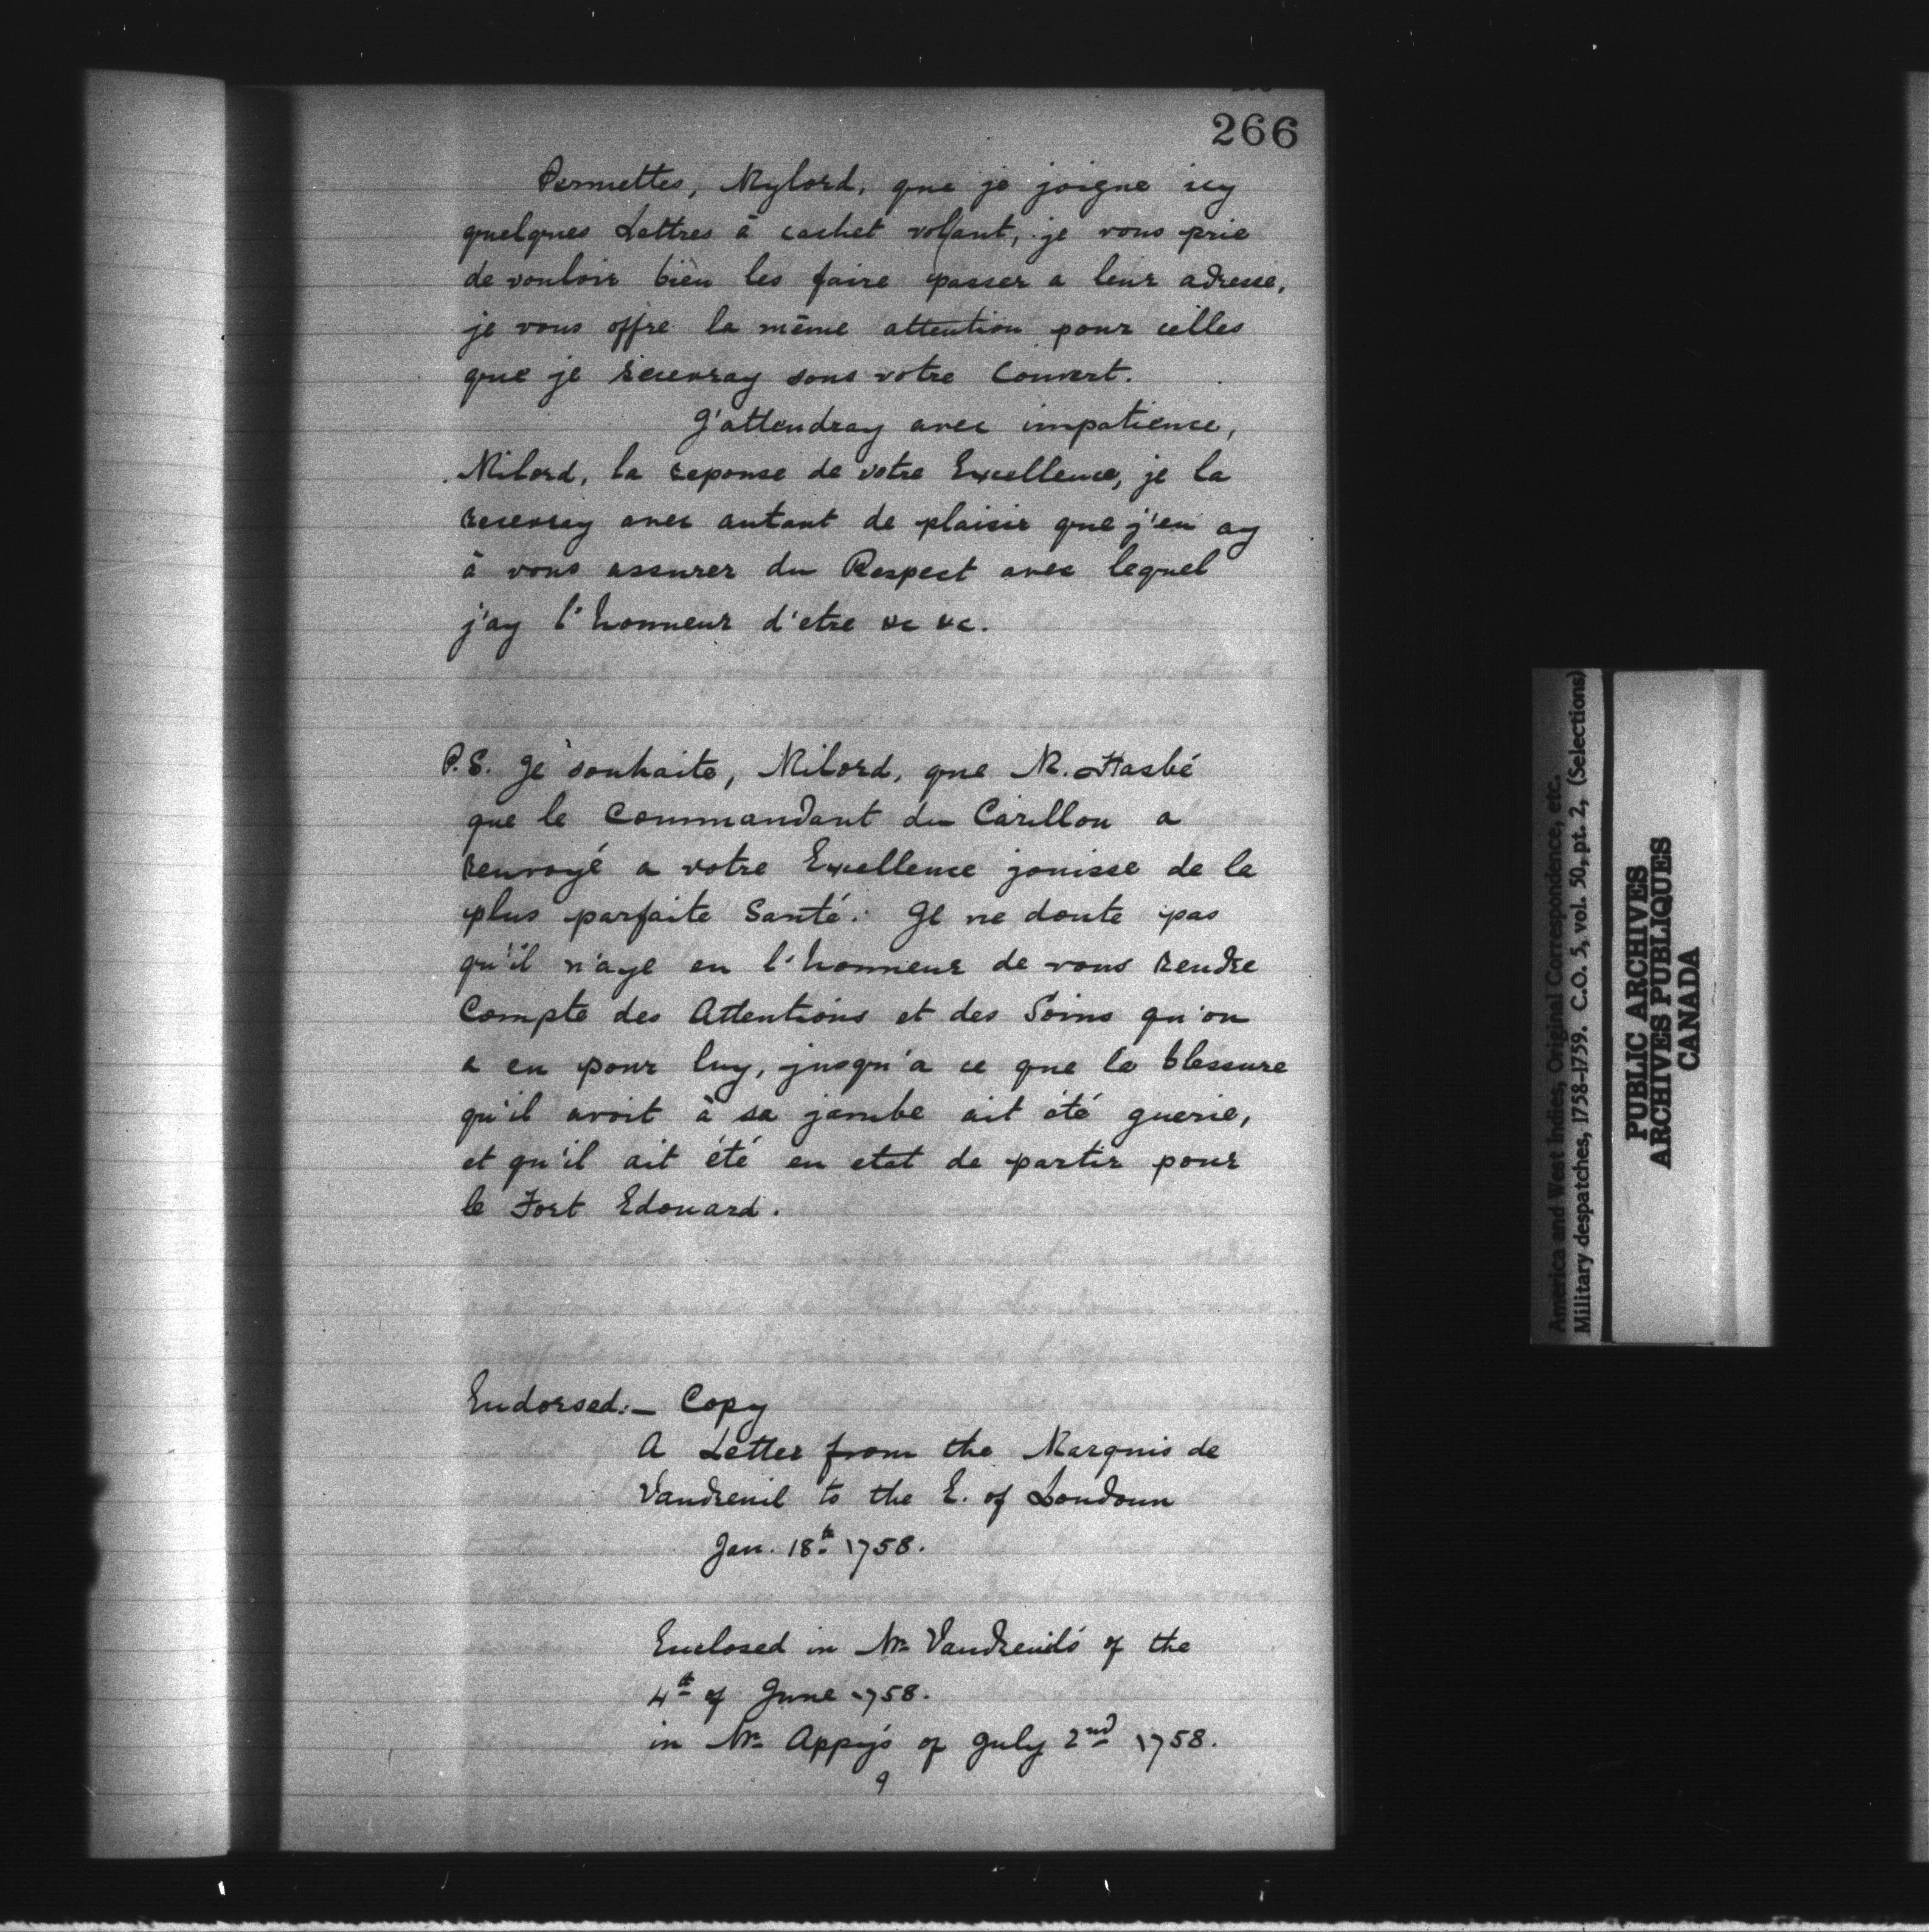 266
Permettes, Mylord, que je joigne icy
quelques Lettres à cachet volant, je vous prie
de vouloir bien les faire passer a leur adresse,
je vous offre la même attention pour celles
que je recevray sous votre Couvert.
J'attendray avec impatience,
Milord, la reponse de votre Excellence, je la
recevray avec autant de plaisir que j'en ay
à vous assurer du Respect avec lequel
j'ay l'honneur d'etre &c &c.
P.S. Je souhaite, Milord, que M. Hasbé
que le Commandant du Carillon a
renvoyé a votre Excellence jouisse de la
plus parfaite Santé. Je ne doute pas
qu'il n'aye eu l'honneur de vous rendre
Compte des Attentions et des Soins qu'on
a eu pour luy, jusqu'a ce que la blessure
qu'il avoit à sa jambe ait été guerie,
et qu'il ait été en etat de partir pour
le Fort Edouard.
Endorsed:- Copy
A Letter from the Marquis de
Vaudreuil to the E. of Loudoun
Jan. 18th 1758.
Enclosed in Mr Vaudreuil's of the
4th of June 1758.
in Mr Appy's of July 2nd 1758.
9
America and West Indies, Original Correspondence, etc.
Military despatches, 1758-1759. C.O. 5, vol. 50, pt. 2, (Selections)
PUBLIC ARCHIVES
ARCHIVES PUBLIQUES
CANADA